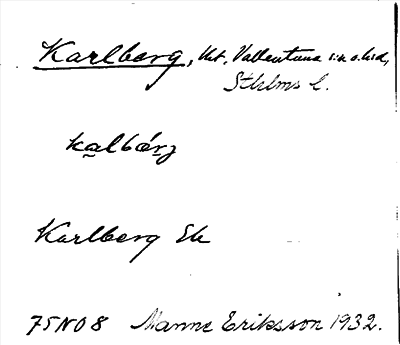 Karlberg, Ut. Vallentuna sn o. hd,
Sthlms l.
kalbárj
Karlberg Ek
75 N O 8 Manne Eriksson 1932.